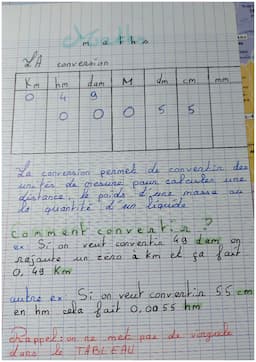 maths
LA conversion
Km hm dam M dm cm mm
0 4 9
0 0 0 5 5
La conversion permet de convertir des
unités de mesure pour calculer une
distance, le poids d'une masse ou
la quantité d'un liquide
Comment convertir ?
ex Si on veut convertir 49 dam, on
rajoute un zéro a km et ça fait
0,49 Km
autre ex Si on veut convertir 55 cm
en hm cela fait 0,0055 hm
Rappel : on ne met pas de virgule
dans le TABLEAU